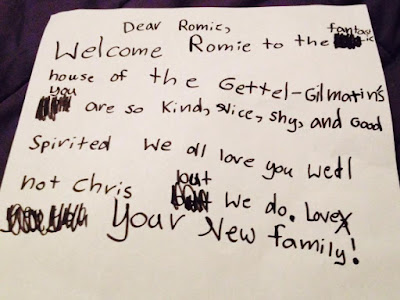 Dear Romie,
Welcome Romie to the fantastic
house of the Gettel-Gilmatin's
you are so Kind, Nice, shy, and Good
Spirited We all love you Well
not Chris but We do. Love
Your New family!